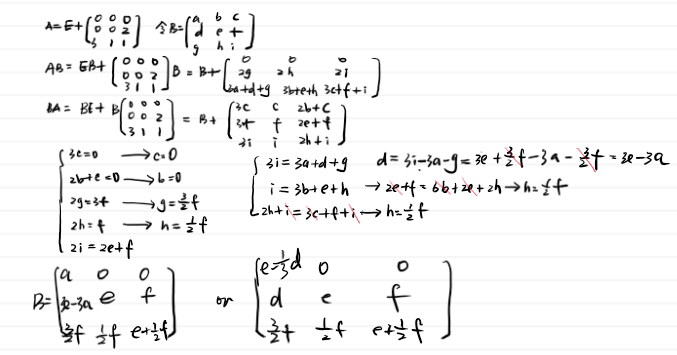 A=E+(0 0 0 / 0 0 2 / 3 1 1) 令B=(a b c / d e f / g h i)
AB= EB+(0 0 0 / 0 0 2 / 3 1 1)B = B+(0 0 0 / 2g 2h 2i / 3a+d+g 3b+e+h 3c+f+i)
BA= BE+B(0 0 0 / 0 0 2 / 3 1 1) = B+(3c c 2b+c / 3f f 2e+f / 3i i 2h+i)
{3c=0 → c=0
2b+c=0 → b=0
2g=3f → g=3/2f
2h=f → h=1/2f
2i=2e+f
{3i=3a+d+g d=3i-3a-g=3e+3/2f-3a-3/2f=3e-3a
i=3b+e+h → 2e+f=6b+2e+2h → h=1/2f
2h+i=3c+f+i → h=1/2f
B=(a 0 0 / 3e-3a e f / 3/2f 1/2f e+1/2f) or (e-1/3d 0 0 / d e f / 3/2f 1/2f e+1/2f)